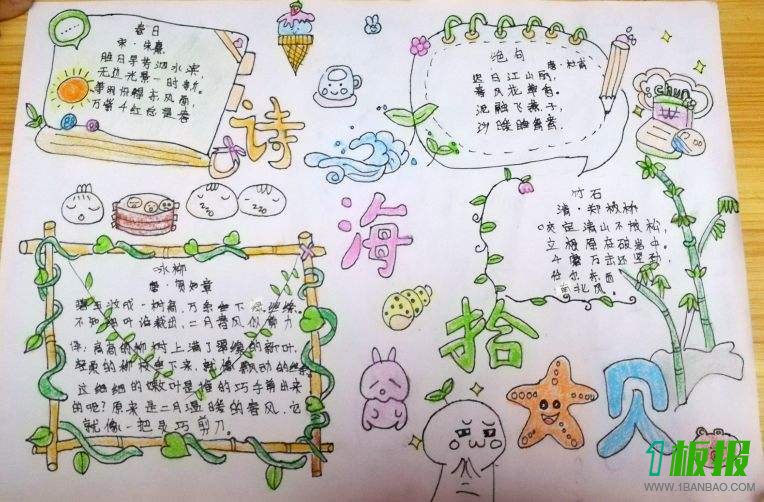 春日
宋·朱熹
胜日寻芳泗水滨
无边光景一时新。
等闲识得东风面,
万紫千红总是春
诗
海
拾
贝
绝句
唐·杜甫
迟日江山丽,
春风花草香。
泥融飞燕子,
沙暖睡鸳鸯。
chun
竹石
清·郑板桥
咬定青山不放松,
立根原在破岩中。
千磨万击还坚劲,
任尔东西
南北风。
zzz
zzo
咏柳
唐·贺知章
碧玉妆成一树高,万条垂下绿丝绦。
不知细叶谁裁出,二月春风似剪刀
译:高高的柳树上满了翠绿的新叶,
轻柔的柳枝垂下来,就像飘动的丝绦
这细细的嫩叶是谁的巧手剪出来
的呢?原来是二月温暖的春风,它
就像一把灵巧剪刀。
1板报
WWW.1BANBAO.COM